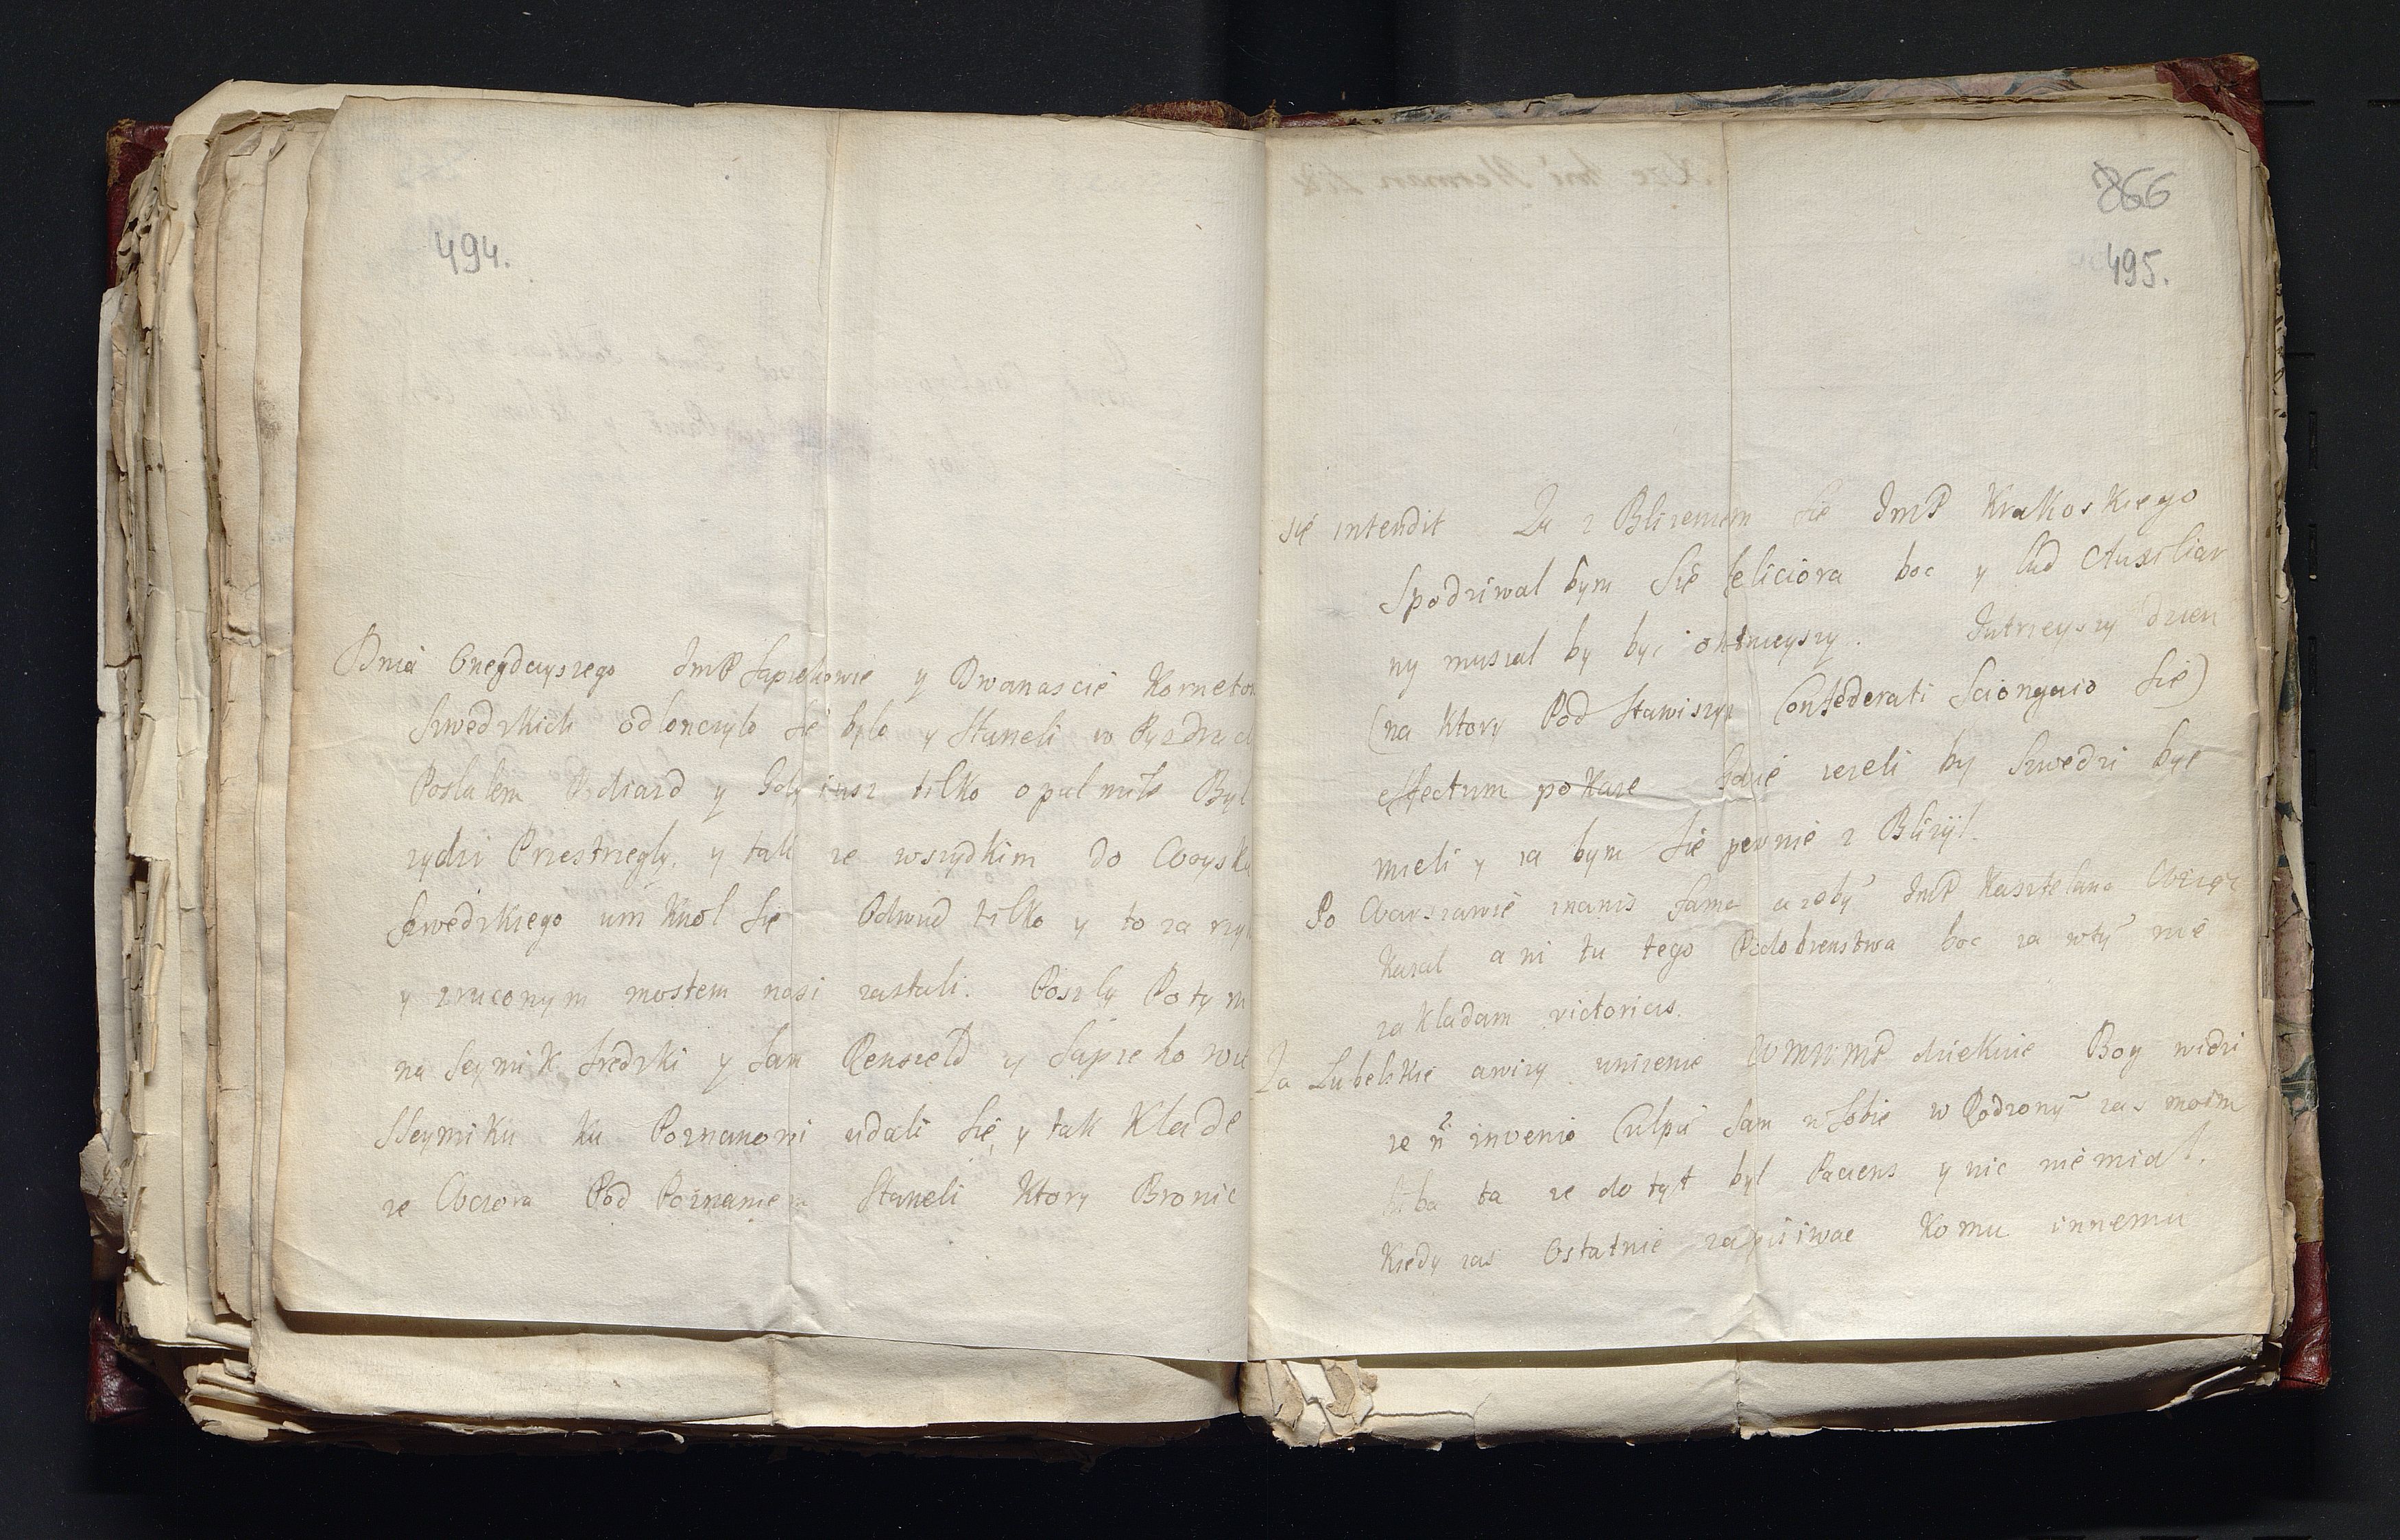 494.
Dnia Onegdayszego JmP Sapiehowie y Dwanascie Korneto
Szwedzkich odlonczylo sie bylo y Staneli w Pyzdra
Poslalem y gdy iusz tilko opul mile Byl
zydzi Przestrzegly. y tak ze wszydkim do Woyska
Szwedzkiego umknol Sie Odwud tilko y to za rzy
y zruconym mostem nasi zastali. Poszly Potym
na Seymik Sredzki y Sam Renszeld y Sapieho wie
SSeymiku ku Poznanowi udali Sie, y tak Klade
ze Wczora Pod Poznaniem Staneli Ktory Bronic
866
495.
sie intendit Za z Blizeniem Sie JmP Krakoskiego
Spodziwal bym Sie feliciora boc y lud Auxiliar
ny musial by byc ohotnieyszy. Jutrzeyszy dzien
(na ktory Pod Stawiszyn Confederati Sciongaio Sie)
effectum pokaze Gdzie iezeli by Szwedzi byc
mieli y ia bym Sie pewnie z Blizyl.
Po Warszawie inanis fama azeby JmP Kasztelana Wziac
Kazal ani tu tego Podobienstwa boc ia w ty nie
zakladam victorias.
Za Lubelskie awizy unizenie WMWMP dziekuie Bog widzi
ze n invenio Culpa Sam w Sobie w Rodzony zas moim
hiba ta ze do tyt byl Paciens y nic nie mial.
Kiedy zas Ostatnie komu innemu